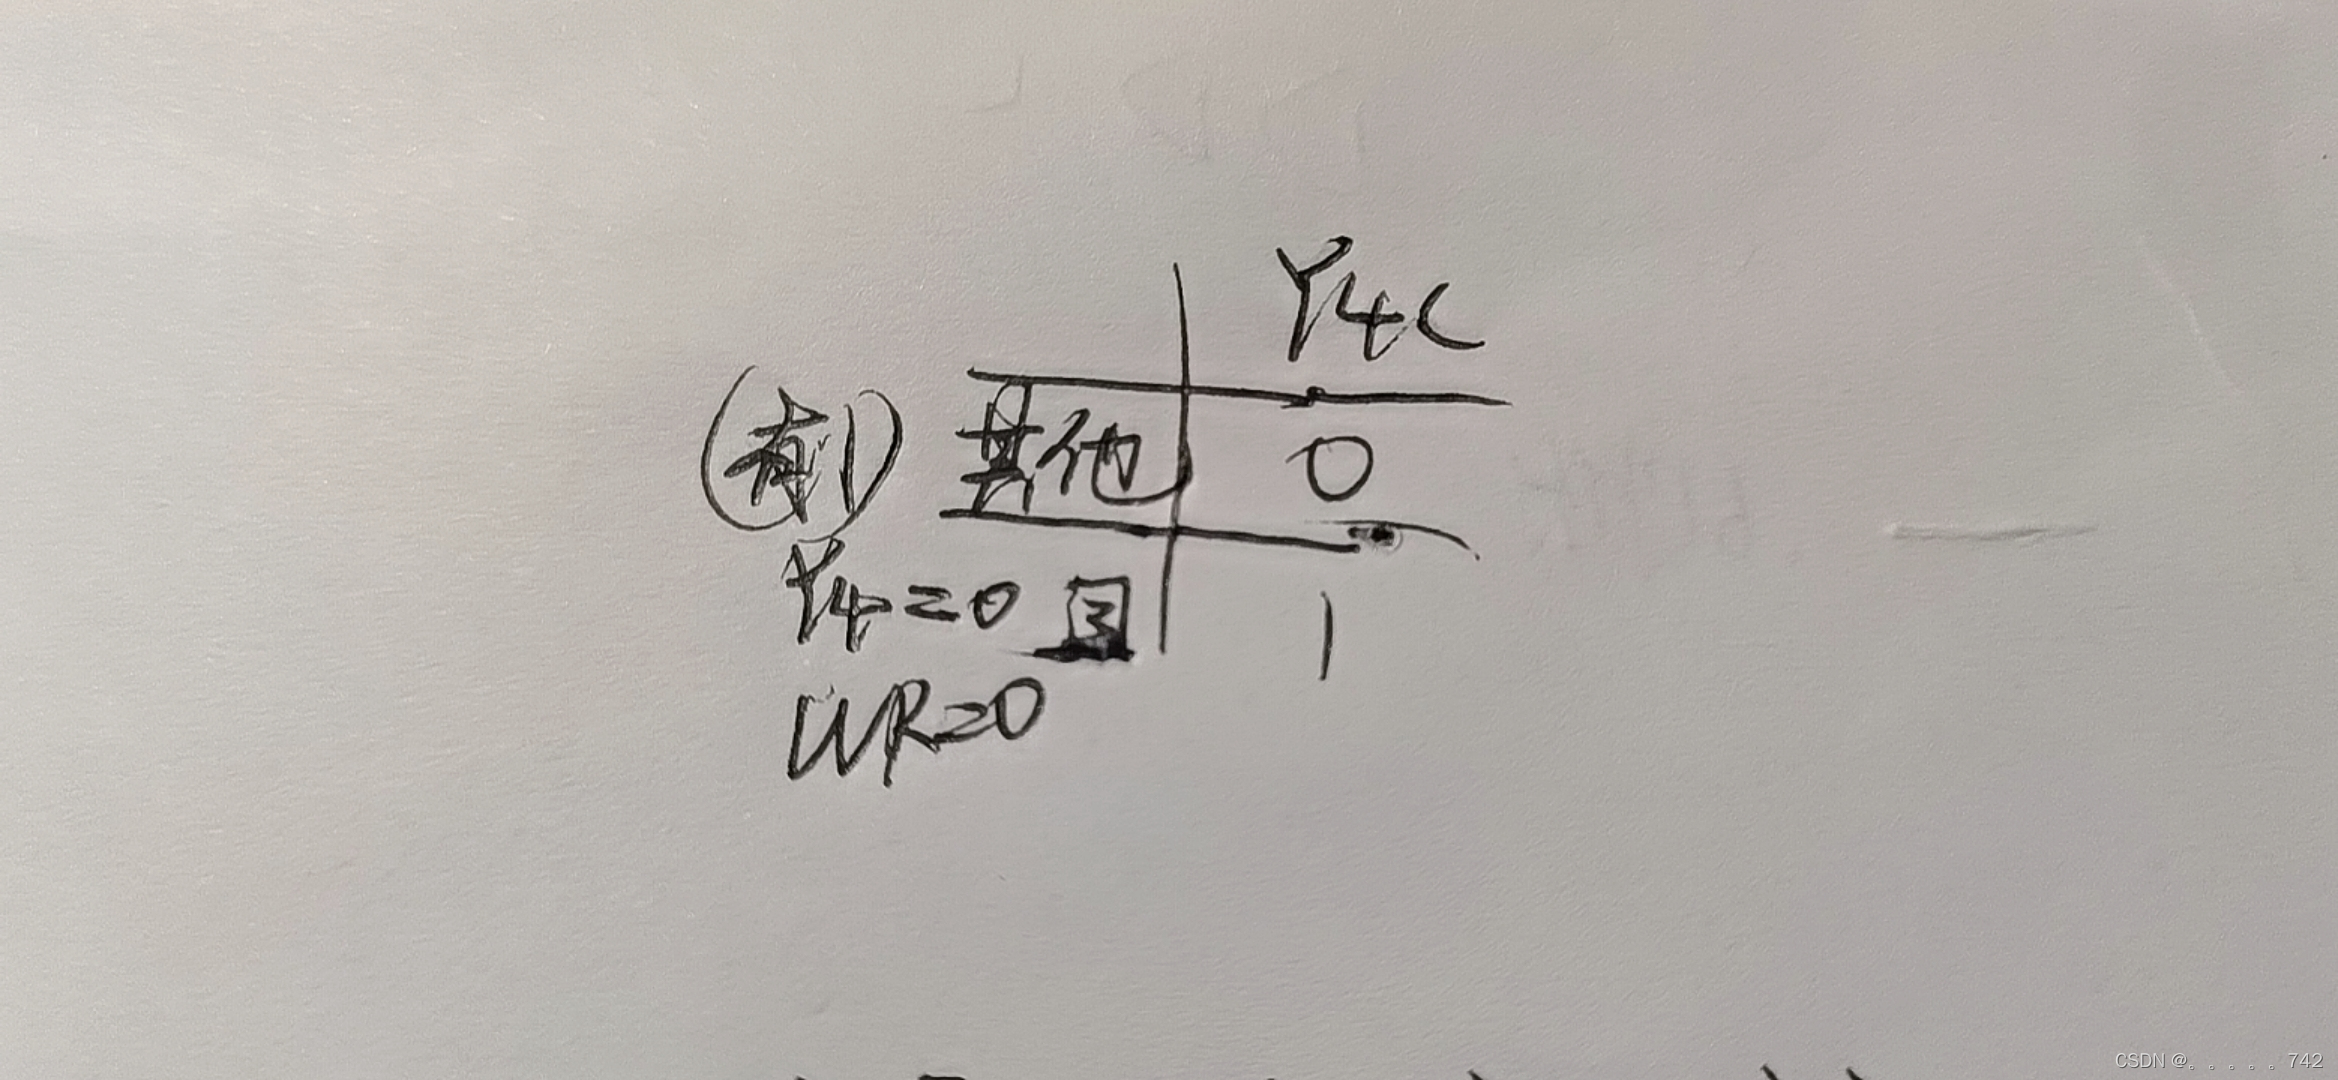 Y4C
(有1) 其他 0
Y4=0 且 1
WR=0
CSDN @。。。。。742